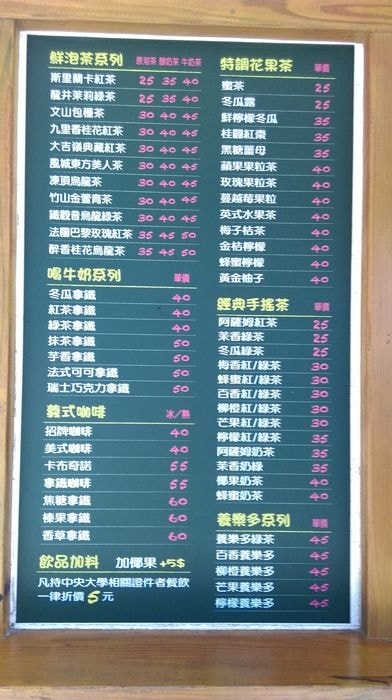 鮮泡茶系列 原泡茶 鮮奶茶 牛奶茶
斯里蘭卡紅茶 25 35 40
龍井茉莉綠茶 25 35 40
文山包種茶 30 40 45
九里香桂花紅茶 30 40 45
大吉嶺典藏紅茶 30 40 45
風城東方美人茶 30 40 45
凍頂烏龍茶 30 40 45
竹山金萱青茶 30 40 45
鐵觀音烏龍綠茶 30 40 45
法國巴黎玫瑰紅茶 35 45 50
醉香桂花烏龍茶 35 45 50
喝牛奶系列 單價
冬瓜拿鐵 40
紅茶拿鐵 40
綠茶拿鐵 40
抹茶拿鐵 50
芋香拿鐵 50
法式可可拿鐵 50
瑞士巧克力拿鐵 50
義式咖啡 冰/熱
招牌咖啡 40
美式咖啡 40
卡布奇諾 55
拿鐵咖啡 55
焦糖拿鐵 60
榛果拿鐵 60
香草拿鐵 60
飲品加料 加椰果+5$
凡持中央大學相關證件者餐飲
一律折價 5 元
特調花果茶 單價
蜜茶 25
冬瓜露 25
鮮檸檬冬瓜 35
桂圓紅棗 35
黑糖薑母 35
蘋果果粒茶 40
玫瑰果粒茶 40
蔓越莓果粒 40
英式水果茶 40
梅子桔茶 40
金桔檸檬 40
蜂蜜檸檬 40
黃金柚子 40
經典手搖茶 單價
阿薩姆紅茶 25
茉香綠茶 25
冬瓜綠茶 25
梅香紅/綠茶 30
蜂蜜紅/綠茶 30
百香紅/綠茶 30
柳橙紅/綠茶 30
芒果紅/綠茶 30
檸檬紅/綠茶 35
阿薩姆奶茶 35
茉香奶綠 35
椰果奶茶 40
蜂蜜奶茶 40
養樂多系列 單價
養樂多綠茶 45
百香養樂多 45
柳橙養樂多 45
芒果養樂多 45
檸檬養樂多 45